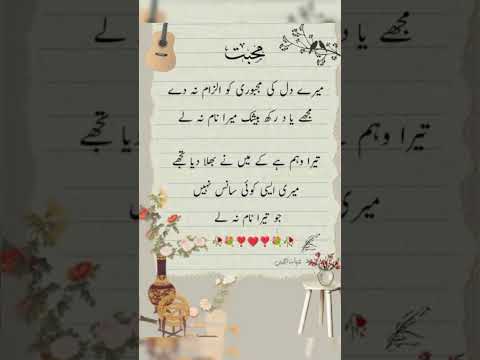 محبت
میرے دل کی مجبوری کو الزام نہ دے
مجھے یاد رکھ بیشک میرا نام نہ لے
تیرا وہم ہے کے میں نے بھلا دیا تجھے
میری ایسی کوئی سانس نہیں
جو تیرا نام نہ لے